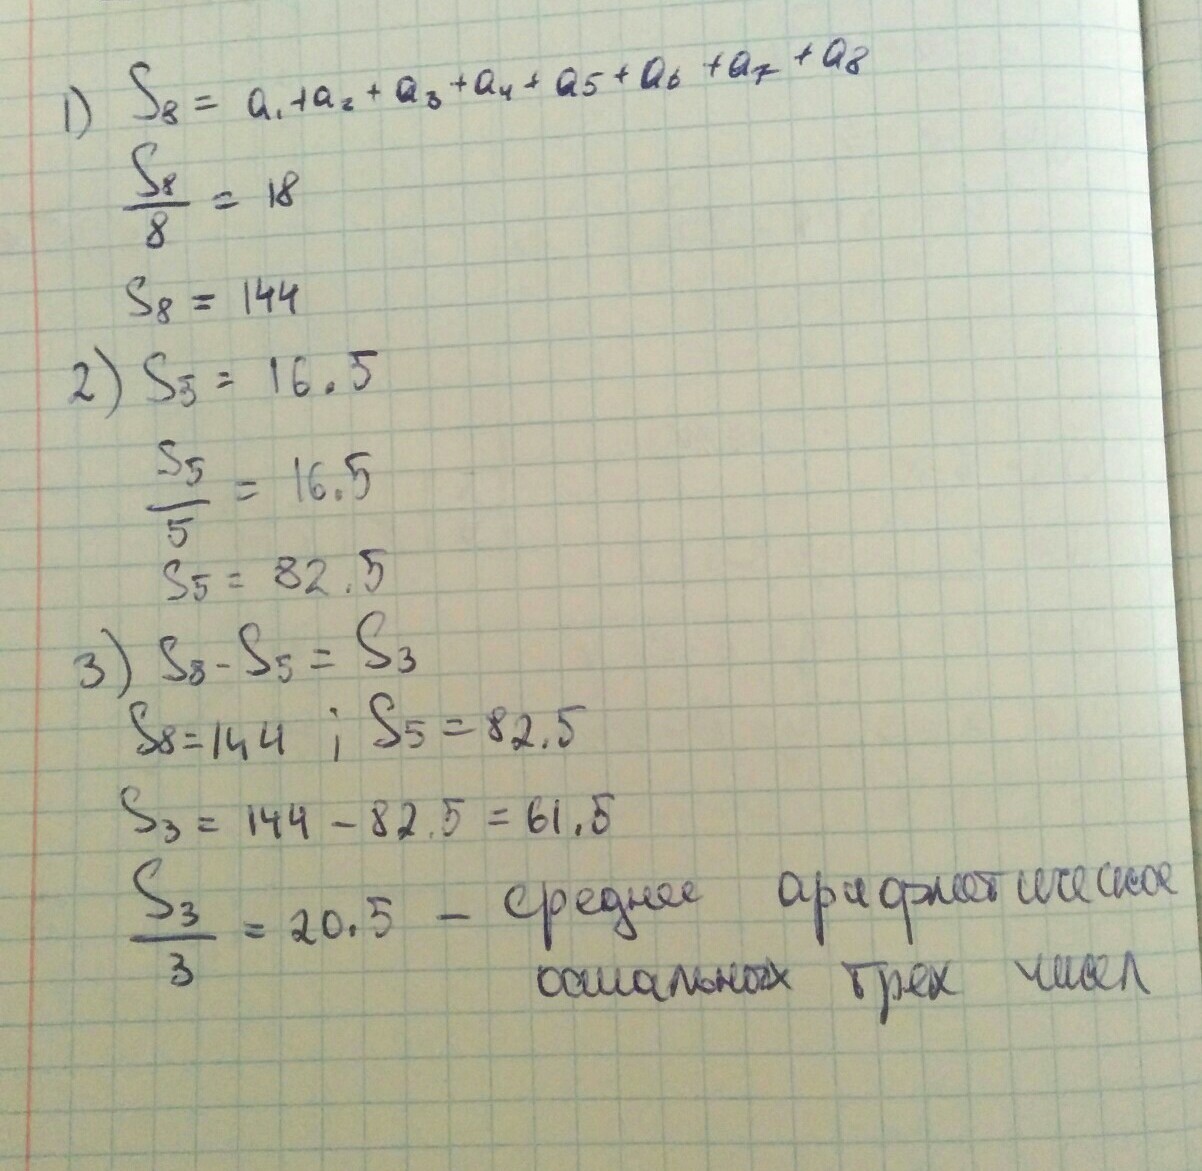 1) S₈ = a₁+a₂+a₃+a₄+a₅+a₆+a₇+a₈
S₈/8 = 18
S₈ = 144
2) S₅ = 16.5
S₅/5 = 16.5
S₅ = 82.5
3) S₈-S₅ = S₃
S₈=144 ; S₅=82.5
S₃ = 144 - 82.5 = 61.5
S₃/3 = 20.5 - среднее арифметическое
остальных трех чисел